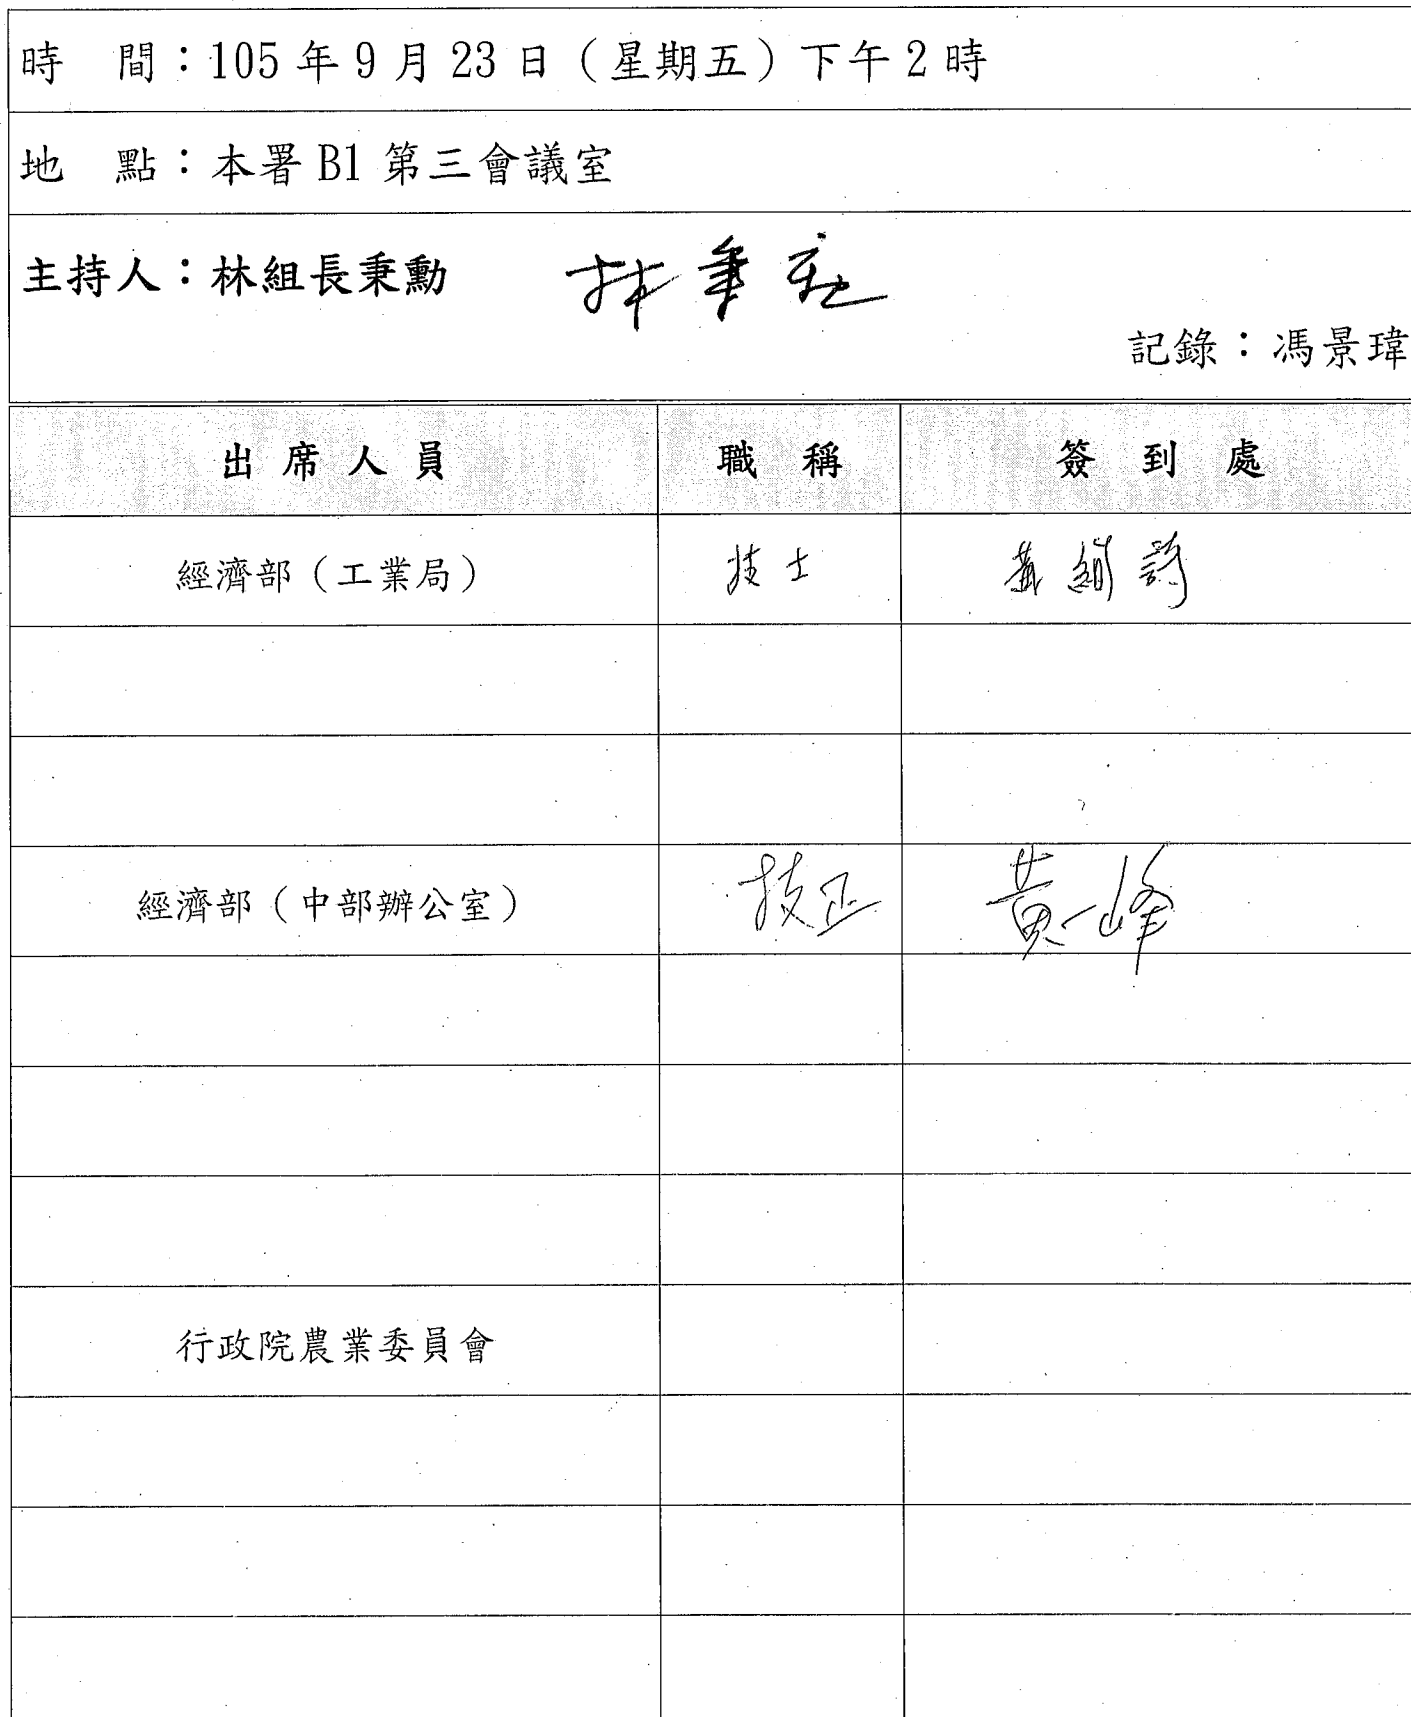 時　間：105年9月23日（星期五）下午2時
地　點：本署B1第三會議室
主持人：林組長秉勳　林秉勳
記錄：馮景瑋
出席人員　職稱　簽到處
經濟部（工業局）　技士　黃絹詩
經濟部（中部辦公室）　技正　黃一峰
行政院農業委員會